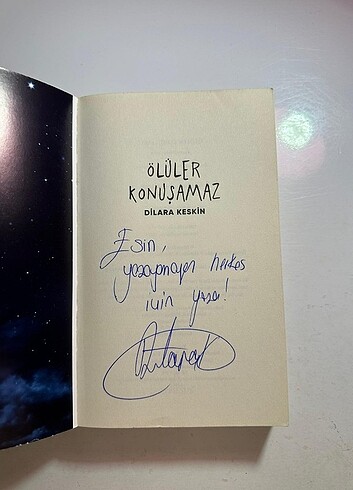 ÖLÜLER
KONUŞAMAZ
DİLARA KESKİN
Esin,
yaşayamayan herkes
için yaşa!